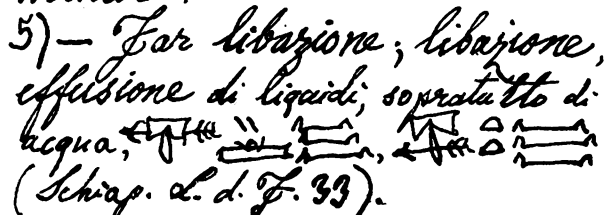 5) — Far libazione; libazione,
effusione di liquidi, sopratutto di
acqua,
(Schiap. L. d. F. 33).